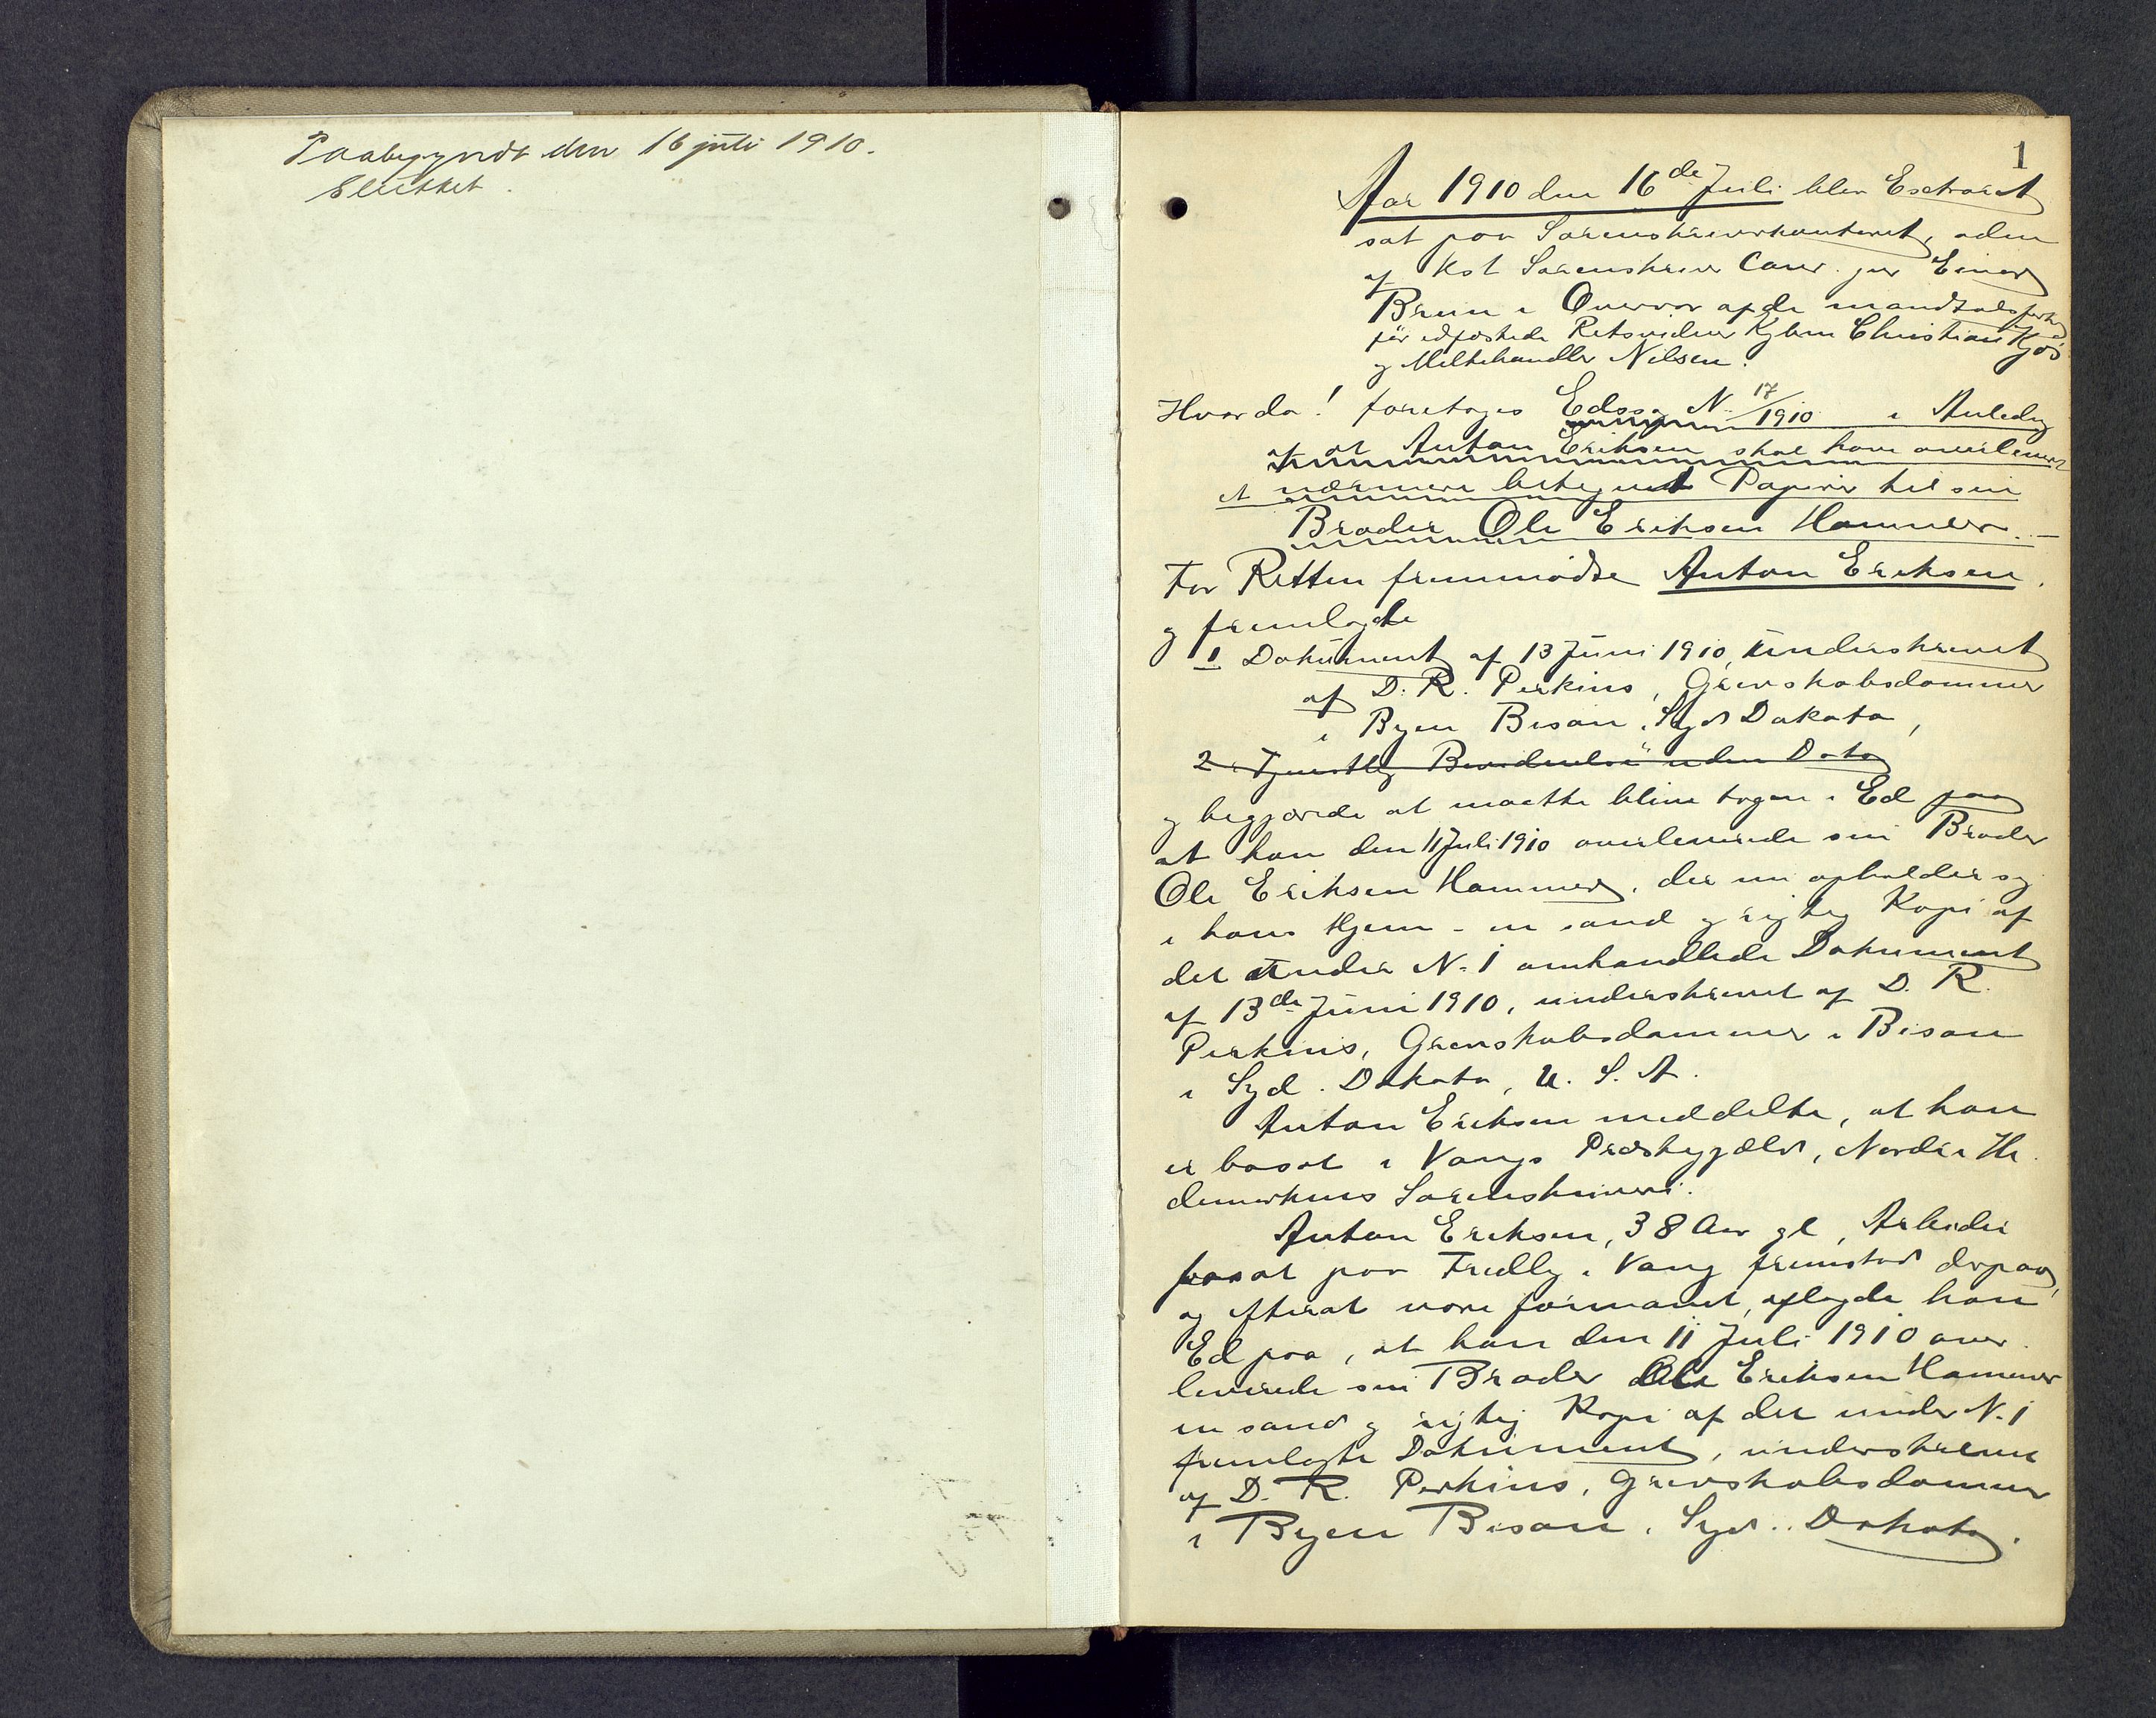 Paabegyndt den 16 juli 1910.
Sluttet.
1
Aar 1910 den 16de Juli blev Extraret
sat paa Sorenskriverkontoret, aden
af Kst Sorenskriver Cand. jur Einar
Brun i Overvær af de mandtalsførte
før edfæstede Retsvidner Christian Kjos
og Meltehandler Nilsen.
Hvor da! foretoges Edssag N. 17/1910 i Anledng
af at Anton Eriksen skal have overleveret
et nærmere betegnet Papir til sin
Broder Ole Eriksen Hammer. -
For Retten fremmødte Anton Eriksen,
og fremlagde
1 Dokument af 13 Juni 1910, underskrevet
af D. R. Perkins, Grevskabsdommer
i Byen Bison, Syd Dakota,
2. Tjenstlig Bevidnelse uden Dato
og begjærede at maatte blive tagen i Ed paa
at han den 11 Juli 1910 overleverede sin Broder
Ole Eriksen Hammer, der nu opholder sig
i hans Hjem - en sand og rigtig Kopi af
det under N. 1 omhandlede Dokument
af 13de Juni 1910, underskrevet af D. R.
Perkins, Grevskabsdommer i Bison
i Syd. Dakota, U. S. A.
Anton Eriksen meddelte, at han
er bosat i Vangs Præstegjæld, Nordre He
demarkens Sorenskriveri.
Anton Eriksen, 38 Aar gl, Arbeider
bosat paa Fredly i Vang fremstod derpaa,
og efterat være formanet, aflagde han
Ed paa, at han den 11 Juli 1910 over
leverede sin Broder Ole Eriksen Hammer
en sand og rigtig Kopi af det under N. 1
fremlagte Dokument, underskrevet
af D. R. Perkins, Grevskabsdommer
i Byen Bison, Syd.. Dakota.